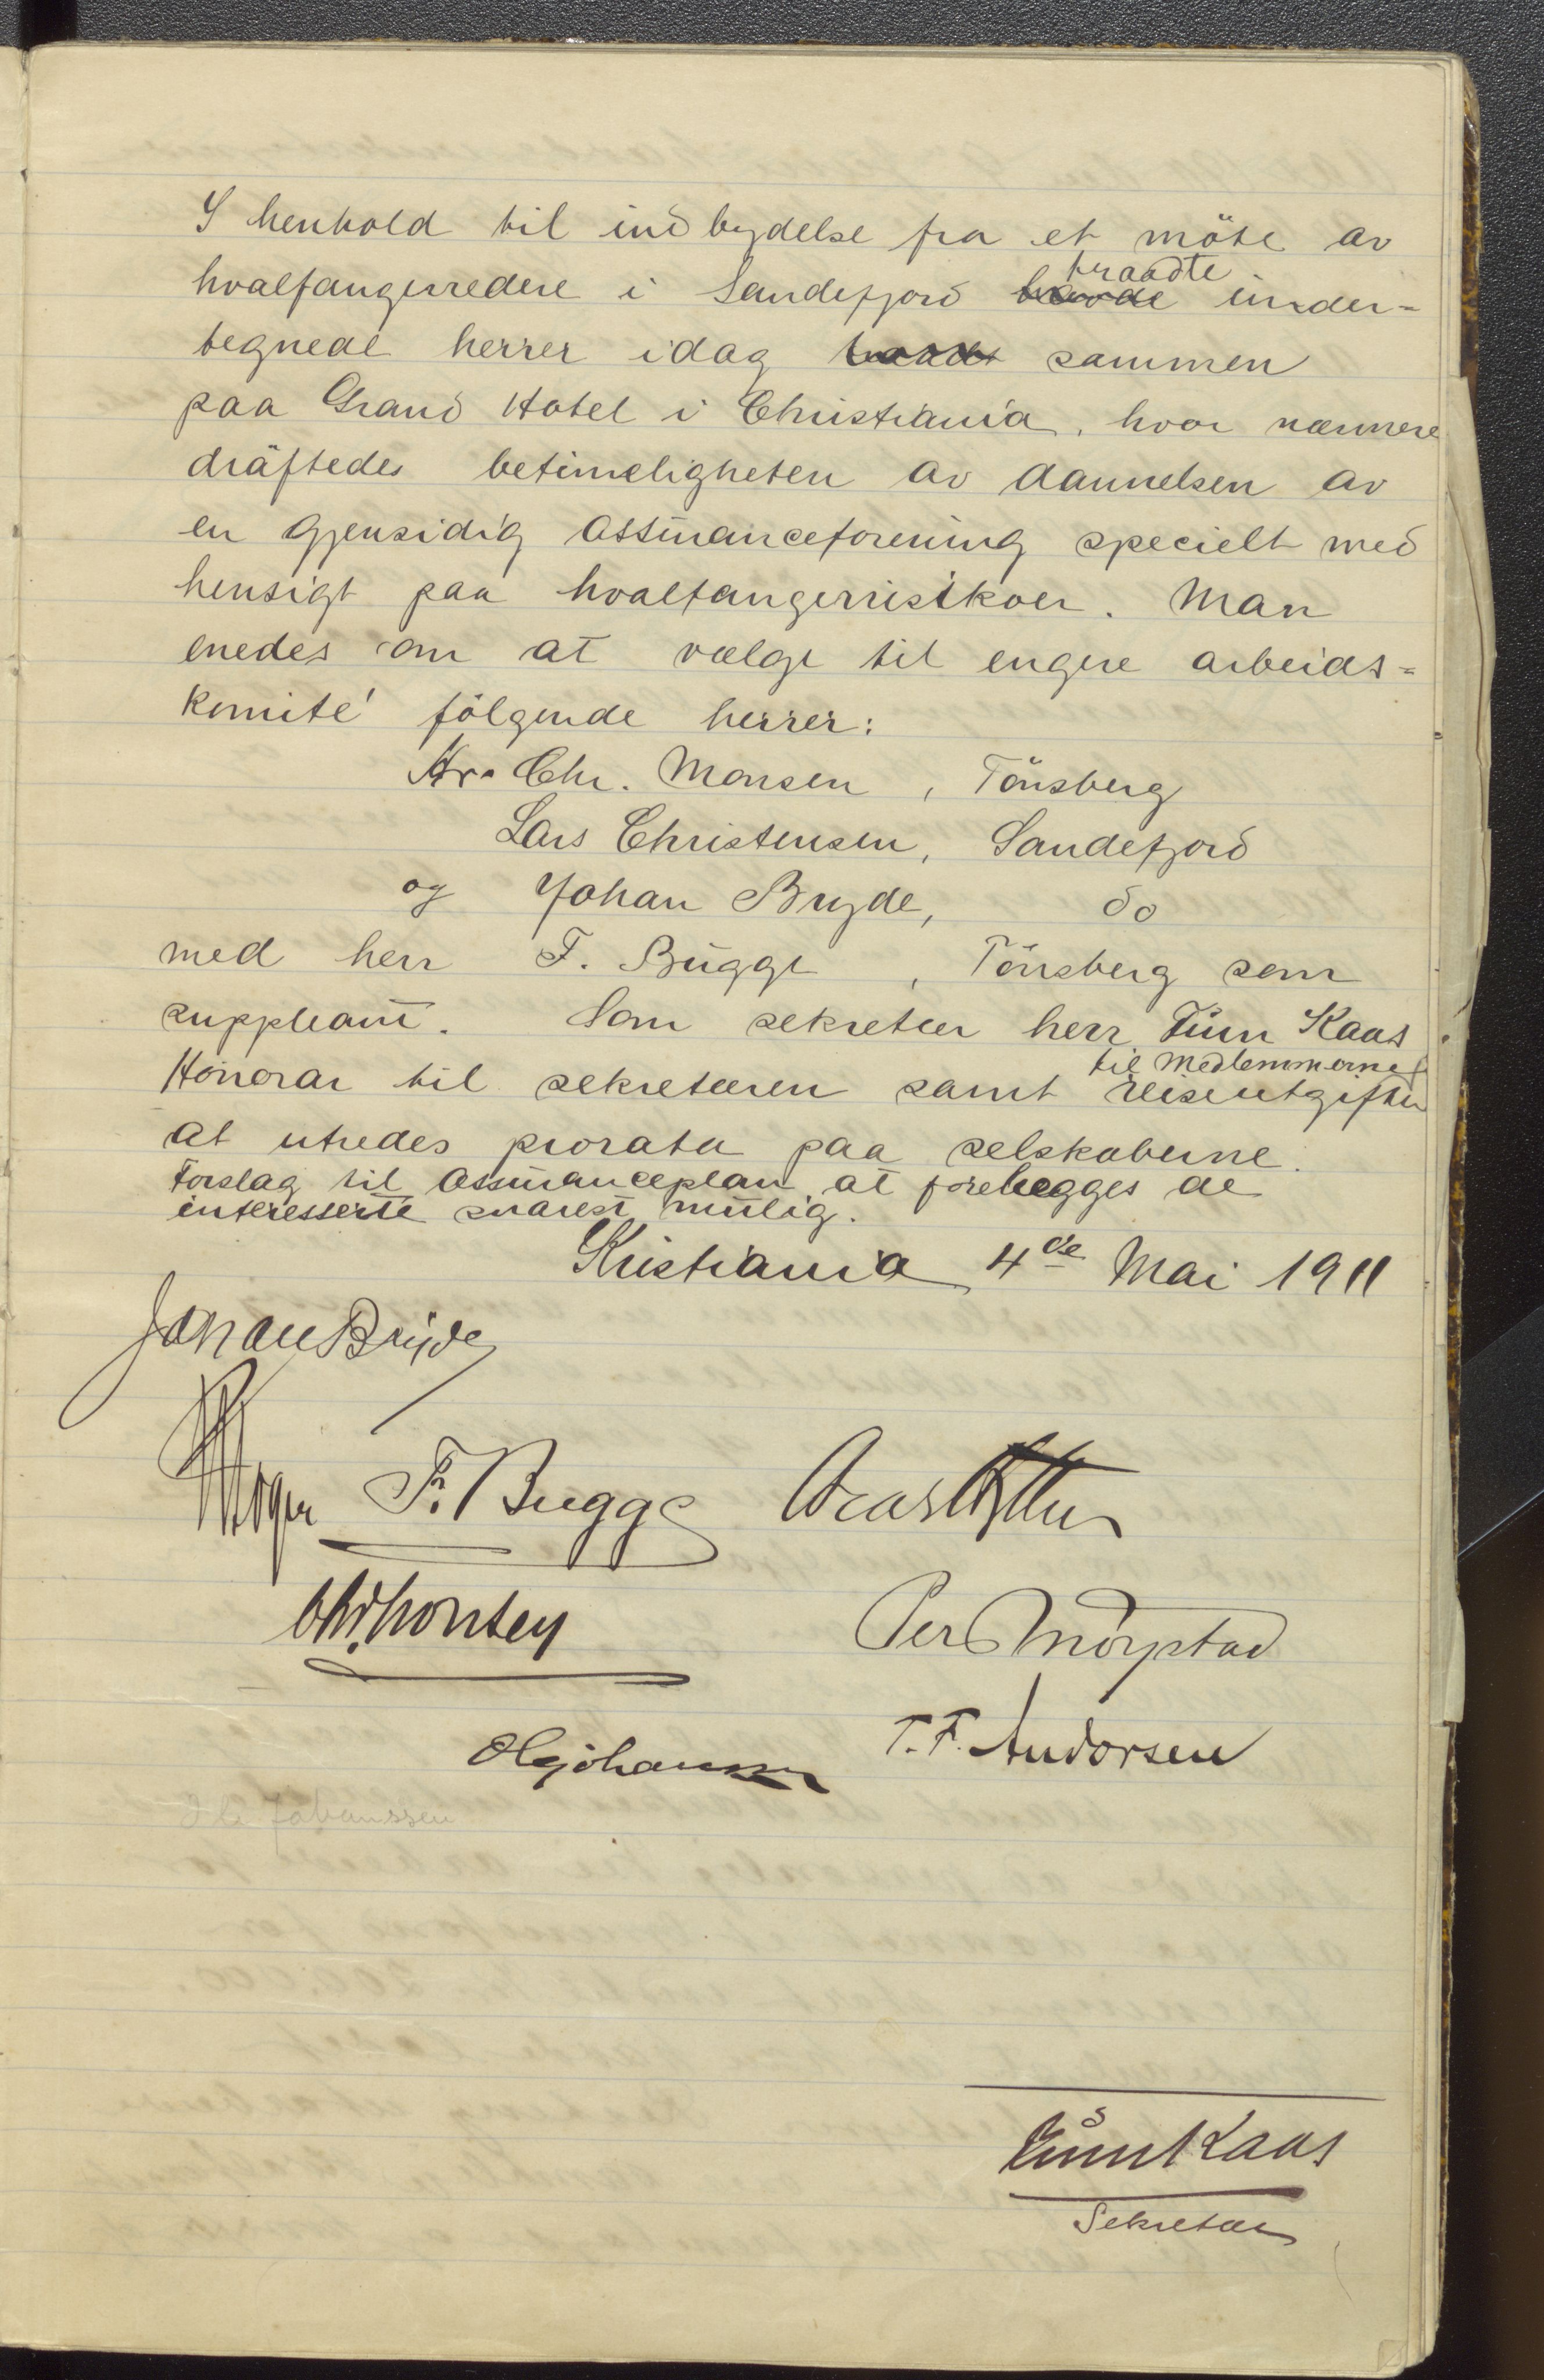 I henhold til indbydelse fra et möte av
hvalfangerredere i Sandefjord traadte under-
tegnede herrer idag sammen
paa Grand Hotel i Christiania, hvor nærmere
dräftedes betimeligheten av dannelsen av
en gjensidig assuranceforening specielt med
hensigt paa hvalfangerrisikoer. Man
enedes om at vælge til engere arbeids-
komité fölgende herrer:
Hr. Chr. Monsen, Tönsberg
Lars Christensen, Sandefjord
og Johan Bryde, do
med herr F. Bugge, Tönsberg som
suppleant. Som sekretær herr Finn Kaas
Honorar til sekretæren samt til medlemmerne reiseutgifter
at utredes prorata paa selskaberne.
Forslag til assuranceplan at forelægges de
interesserte snarest mulig.
Kristiania 4de Mai 1911
Johan Bryde
F. Bugge
Chr. Monsen
Per
Ole Johanssen T.F. Andorsen
Ole Johanssen
Finn Kaas
Sekretær